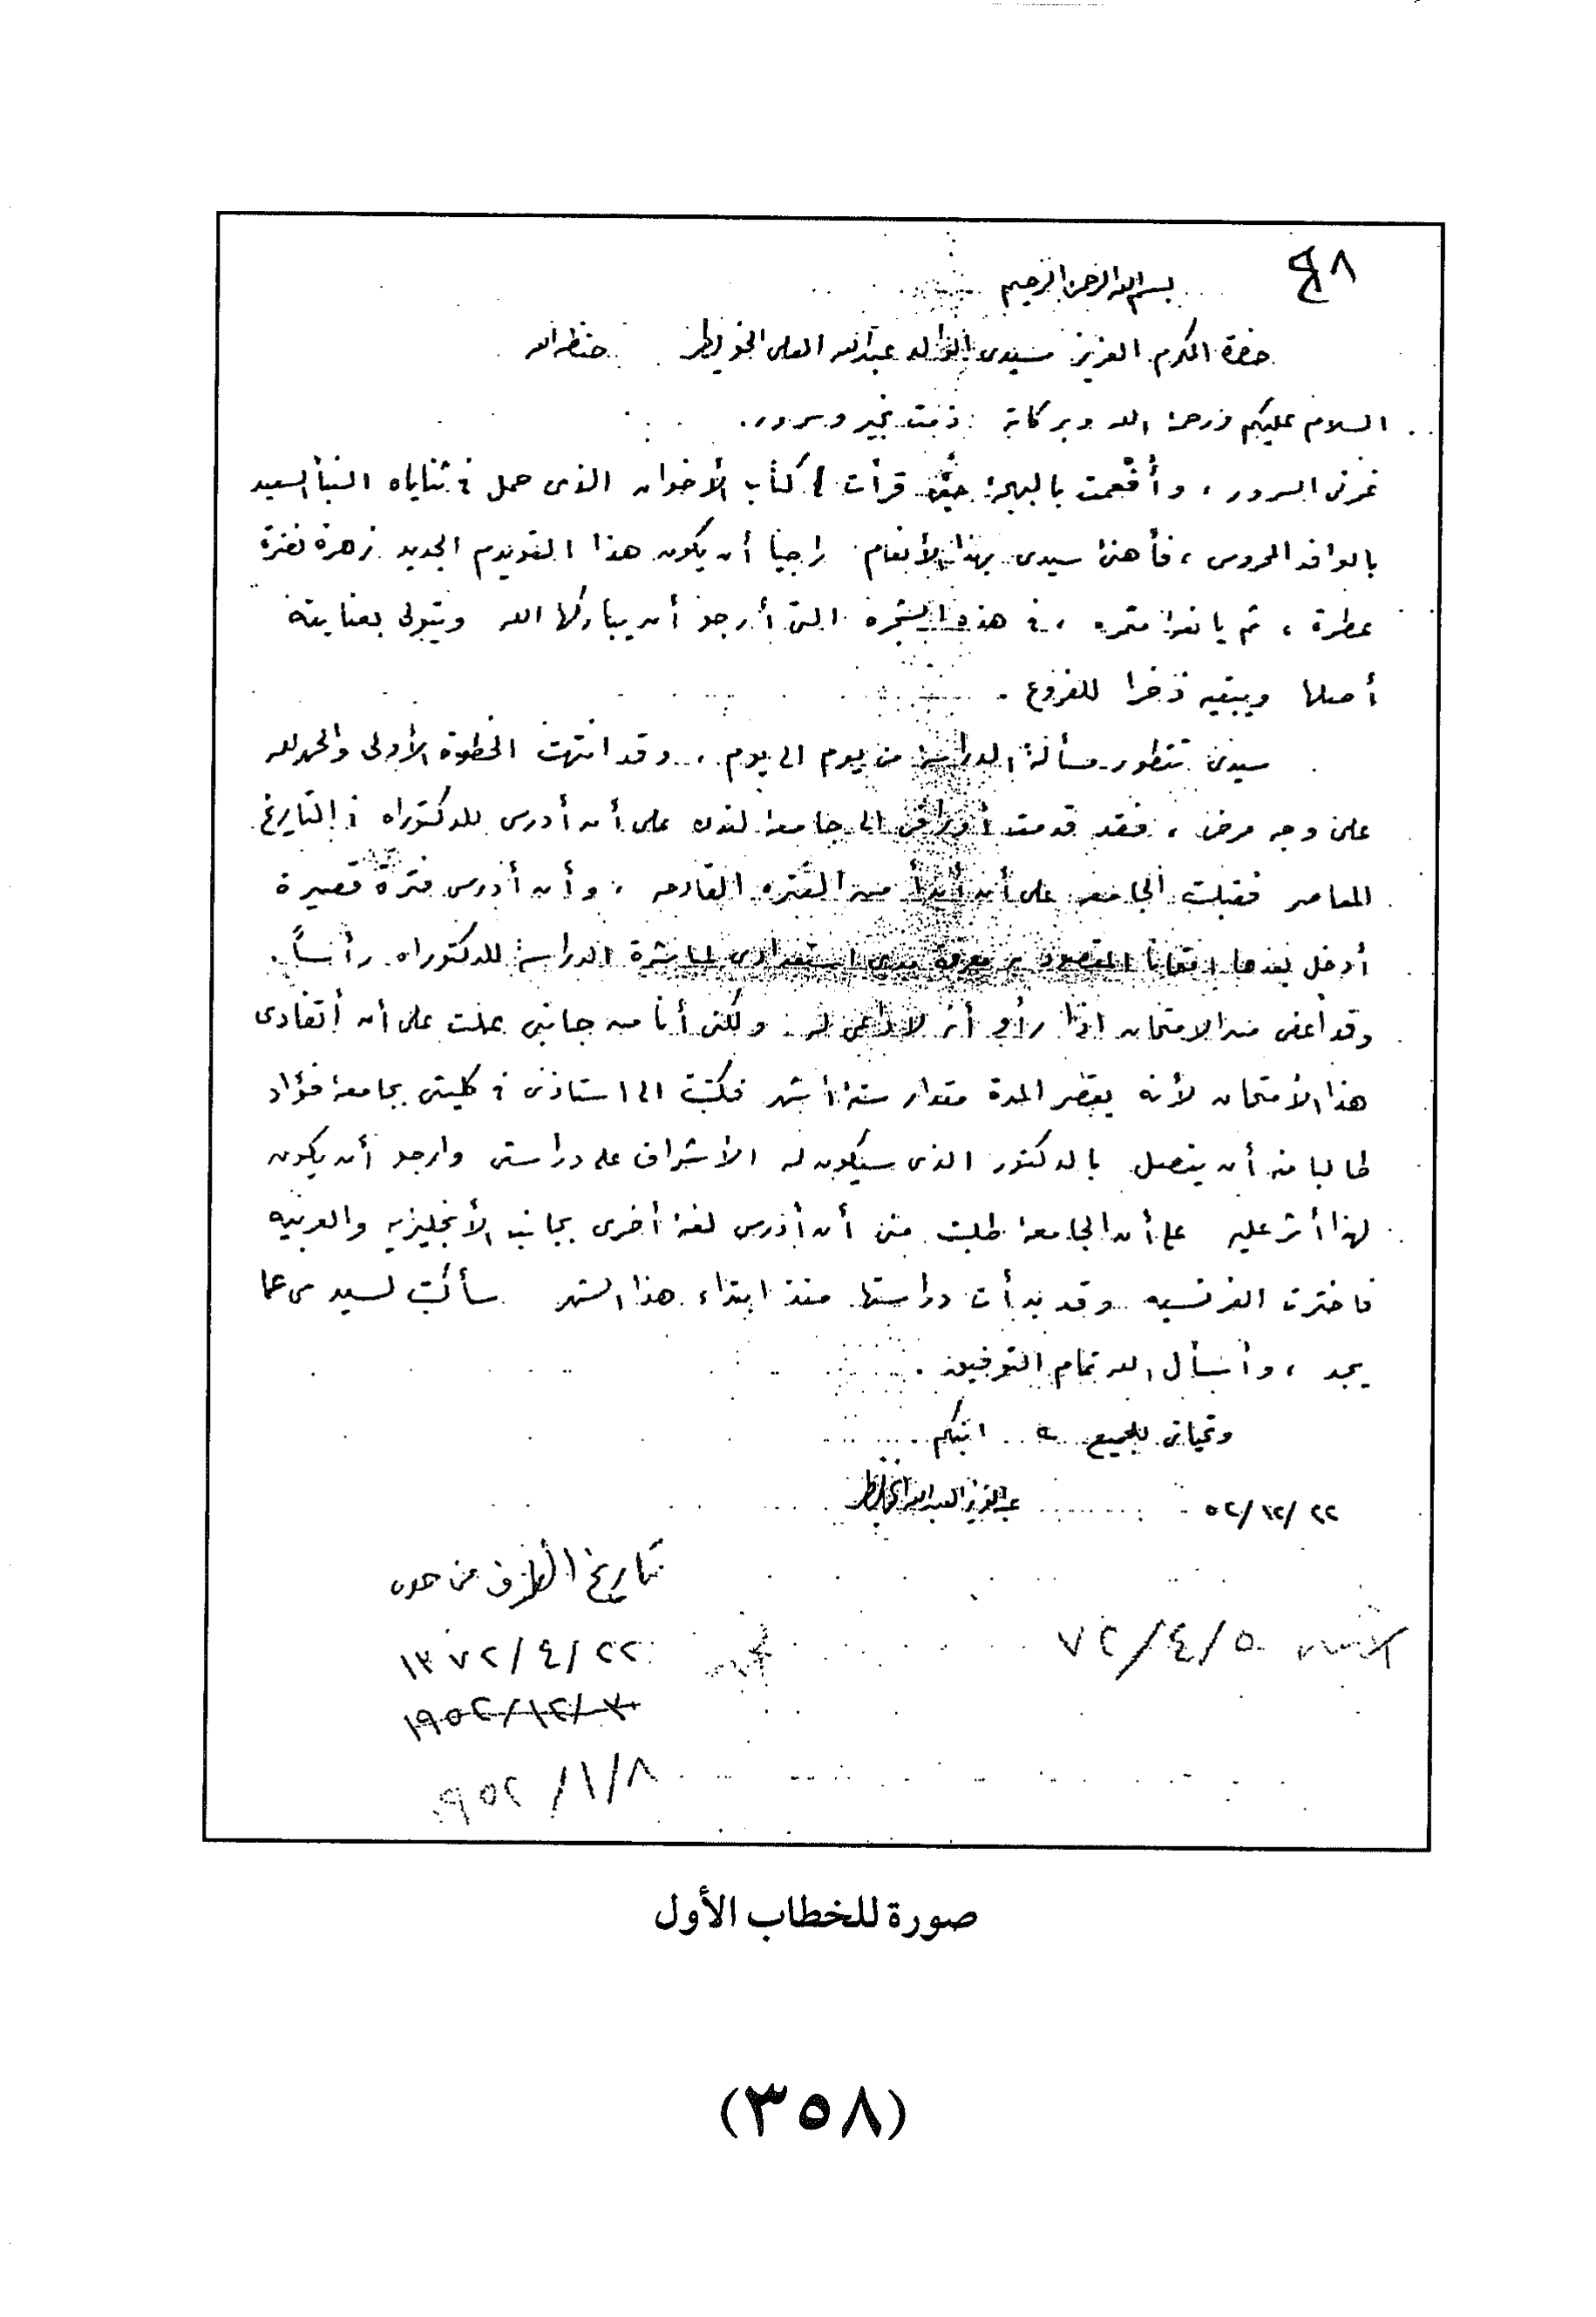 ٤٨
بسم الله الرحمن الرحيم
حضرة المكرم العزيز سيدى الوالد عبدالله العلى الخويطر حفظه الله
السلام عليكم ورحمة الله وبركاته دمت بخير وسرور.
غمرنى السرور ، وأفعمت بالبهجة حين قرأت كتاب الأخوان الذى حمل فى ثناياه النبأ السعيد
بالوافد المحروس ، فأهنئ سيدى بهذا الأنعام راجيا أن يكون هذا القويدم الجديد زهرة نضرة
عطرة ، ثم يانعة مثمره ، فى هذه الشجره التى أرجو أن يباركها الله ويتولى بعنايته
أصلها ويبقيه ذخرا للفروع .
سيدى تتطور مسألة الدراسة من يوم الى يوم ، وقد انتهت الخطوة الأولى والحمدلله
على وجه مرض ، فقد قدمت أوراقى الى جامعة لندن على أن أدرس للدكتوراه فى التاريخ
المعاصر فقبلت الجامعه على أن أبدأ من الفتره القادمه ، وأن أدرس فترة قصيرة
أدخل بعدها امتحانا المقصود به معرفة مدى استعدادى لمباشرة الدراسة للدكتوراه رأساً.
وقد أعفى من الامتحان اذا رأوا أنه لا داعى له . ولكنى أنا من جانبى عملت على أن أتفادى
هذا الأمتحان لأنه يقصر المدة مقدار ستة أشهر فكتبت الى استاذى فى كليتى بجامعة فؤاد
طالبا منه أن يتصل بالدكتور الذى سيكون له الأشراف على دراستى وارجو أن يكون
لهذا أثر عليه على أن الجامعة طلبت منى أن أدرس لغة أخرى بجانب الأنجليزيه والعربيه
فاخترت الفرنسيه وقد بدأت دراستها منذ ابتداء هذا الشهر سأكتب لسيدى عما
يجد ، وأسأل الله تمام التوفيق .
وتحياتى للجميع ابنكم
٢٢/١٢/٥٢ عبدالعزيز العبدالله الخويطر
تاريخ الظرف من
٥/٤/٧٢
٢٢/٤/١٣٧٢
١٩٥٢/١٢/
٨/١/٩٥٢
صورة للخطاب الأول
(٣٥٨)